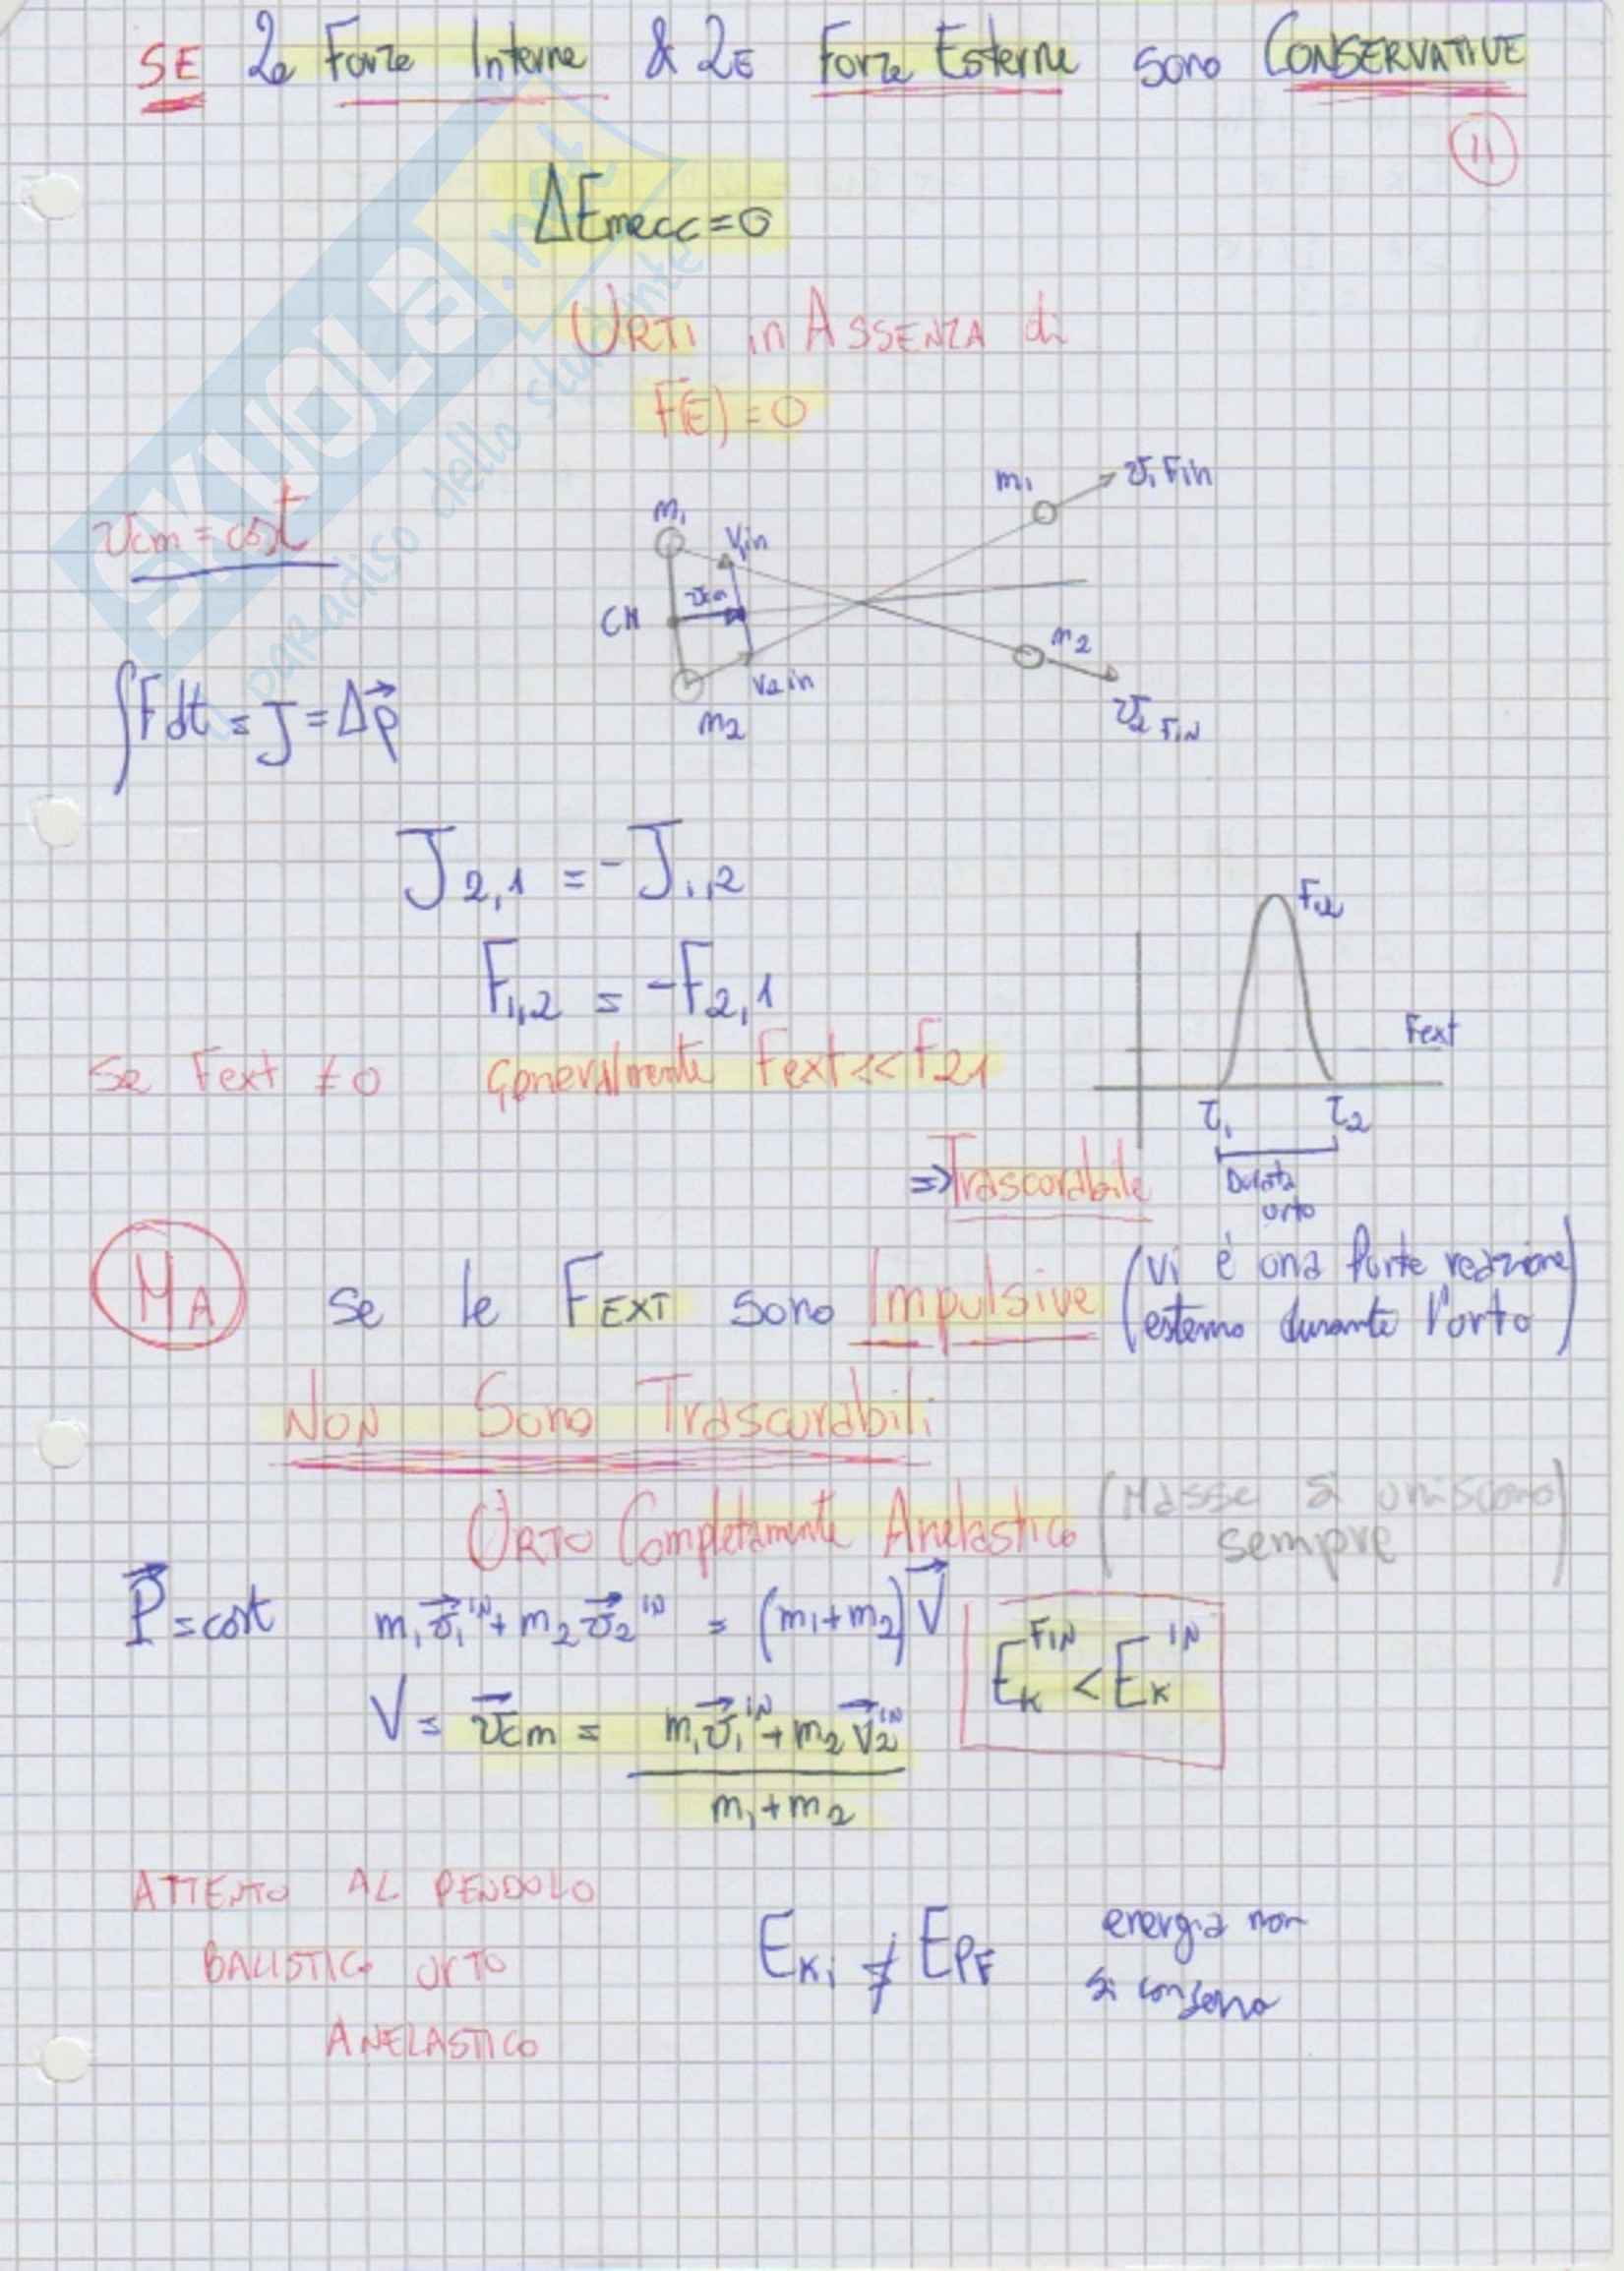 SE Le Forze Interne & LE Forze Esterne sono CONSERVATIVE
11
ΔEmecc = 0
URTI in ASSENZA di
F(E) = 0
vcm = cost
m1
V1in
CM
vcm
V2in
m2
m1
v1 Fin
m2
v2 FIN
∫Fdt = J = Δp⃗
J2,1 = -J1,2
F1,2 = -F2,1
F12
Fext
τ1
τ2
Durata
urto
Se Fext ≠ 0 generalmente Fext << F21
=> Trascurabile
MA se le FEXT sono Impulsive (vi è una forte reazione
esterna durante l'urto)
NON Sono Trascurabili
URTO Completamente Anelastico (Masse si uniscono
sempre)
P⃗ = cost m1v⃗1^IN + m2v⃗2^IN = (m1+m2)V⃗
EK^FIN < EK^IN
V = v⃗cm = m1v⃗1^IN + m2v⃗2^IN
m1+m2
ATTENTO AL PENDOLO
BALISTICO URTO
ANELASTICO
EKi ≠ EPF
energia non
si conserva
SKUOLA.net
paradiso dello studente